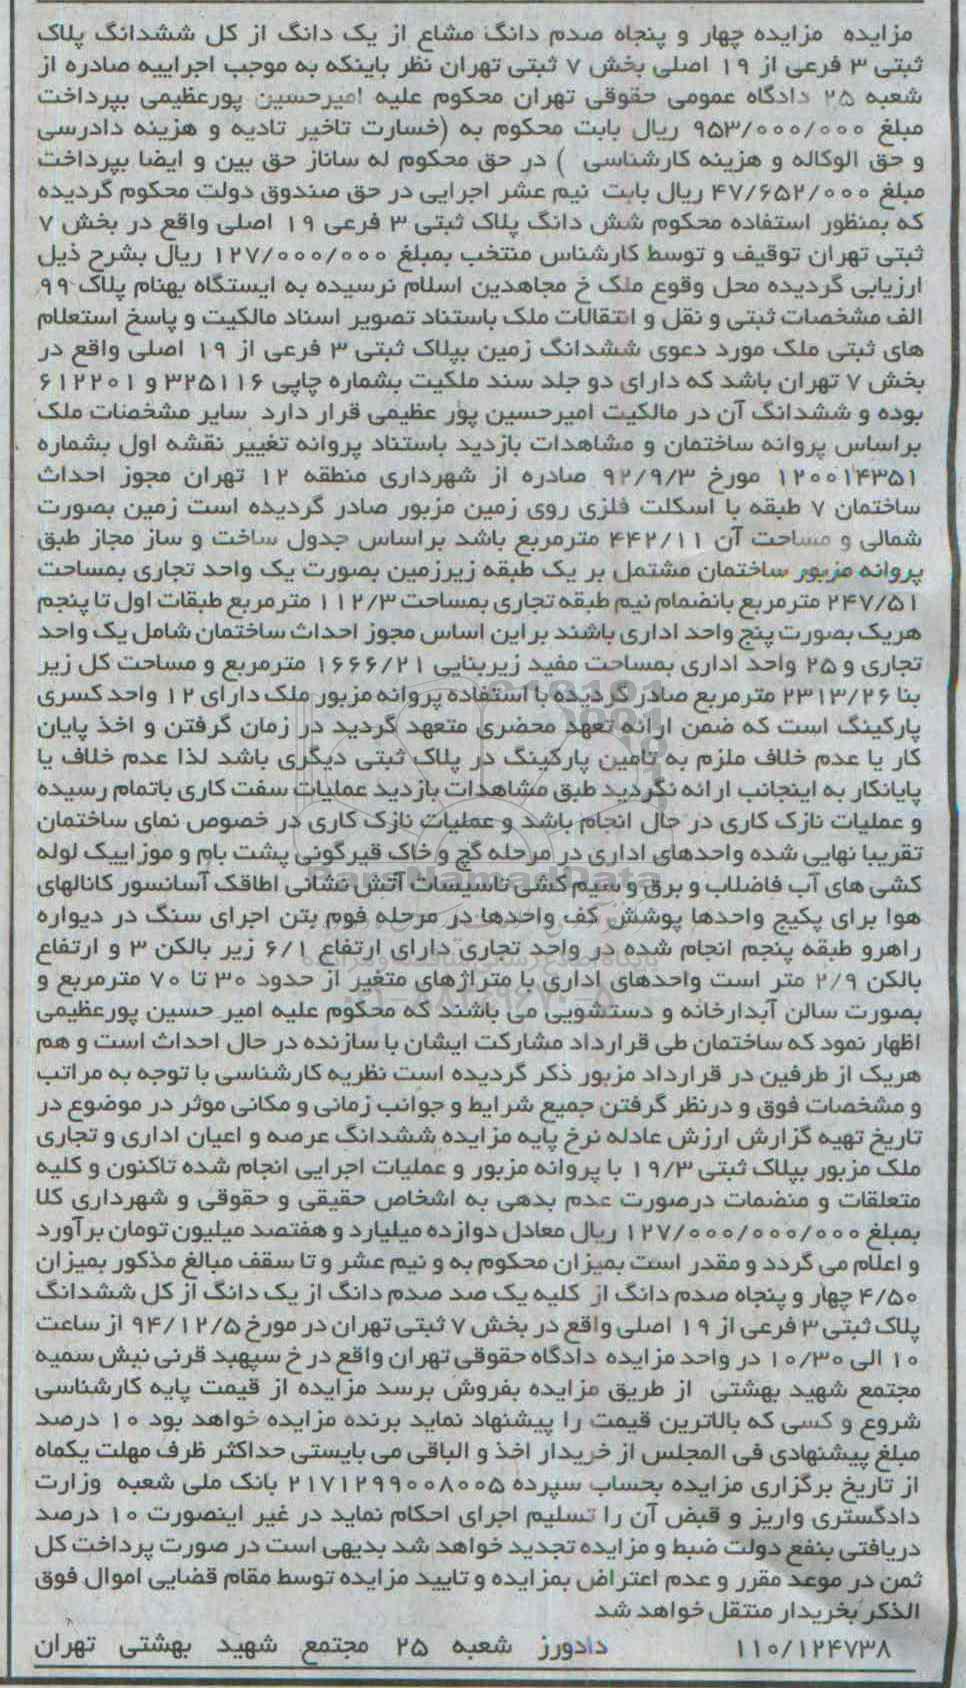 مزایده مزایده چهار و پنجاه صدم دانگ مشاع از یک دانگ از کل ششدانگ پلاک
ثبتی ۳ فرعی از ۱۹ اصلی بخش ۷ ثبتی تهران نظر باینکه به موجب اجراییه صادره از
شعبه ۲۵ دادگاه عمومی حقوقی تهران محکوم علیه امیرحسین پورعظیمی بپرداخت
مبلغ ۹۵۳/۰۰۰/۰۰۰ ریال بابت محکوم به (خسارت تاخیر تادیه و هزینه دادرسی
و حق الوکاله و هزینه کارشناسی ) در حق محکوم له ساناز حق بین و ایضا بپرداخت
مبلغ ۴۷/۶۵۲/۰۰۰ ریال بابت نیم عشر اجرایی در حق صندوق دولت محکوم گردیده
که بمنظور استفاده محکوم شش دانگ پلاک ثبتی ۳ فرعی ۱۹ اصلی واقع در بخش ۷
ثبتی تهران توقیف و توسط کارشناس منتخب بمبلغ ۱۲۷/۰۰۰/۰۰۰ ریال بشرح ذیل
ارزیابی گردیده محل وقوع ملک خ مجاهدین اسلام نرسیده به ایستگاه بهنام پلاک ۹۹
الف مشخصات ثبتی و نقل و انتقالات ملک باستناد تصویر اسناد مالکیت و پاسخ استعلام
های ثبتی ملک مورد دعوی ششدانگ زمین بپلاک ثبتی ۳ فرعی از ۱۹ اصلی واقع در
بخش ۷ تهران باشد که دارای دو جلد سند ملکیت بشماره چاپی ۳۲۵۱۱۶ و ۶۱۲۲۰۱
بوده و ششدانگ آن در مالکیت امیرحسین پور عظیمی قرار دارد سایر مشخصات ملک
براساس پروانه ساختمان و مشاهدات بازدید باستناد پروانه تغییر نقشه اول بشماره
۱۲۰۰۱۴۳۵۱ مورخ ۹۲/۹/۳ صادره از شهرداری منطقه ۱۲ تهران مجوز احداث
ساختمان ۷ طبقه با اسکلت فلزی روی زمین مزبور صادر گردیده است زمین بصورت
شمالی و مساحت آن ۴۴۲/۱۱ مترمربع باشد براساس جدول ساخت و ساز مجاز طبق
پروانه مزبور ساختمان مشتمل بر یک طبقه زیرزمین بصورت یک واحد تجاری بمساحت
۲۴۷/۵۱ مترمربع بانضمام نیم طبقه تجاری بمساحت ۱۱۲/۳ مترمربع طبقات اول تا پنجم
هریک بصورت پنج واحد اداری باشند براین اساس مجوز احداث ساختمان شامل یک واحد
تجاری و ۲۵ واحد اداری بمساحت مفید زیربنایی ۱۶۶۶/۲۱ مترمربع و مساحت کل زیر
بنا ۲۳۱۳/۲۶ مترمربع صادر گردیده با استفاده پروانه مزبور ملک دارای ۱۲ واحد کسری
پارکینگ است که ضمن ارائه تعهد محضری متعهد گردید در زمان گرفتن و اخذ پایان
کار یا عدم خلاف ملزم به تامین پارکینگ در پلاک ثبتی دیگری باشد لذا عدم خلاف یا
پایانکار به اینجانب ارائه نگردید طبق مشاهدات بازدید عملیات سفت کاری باتمام رسیده
و عملیات نازک کاری در حال انجام باشد و عملیات نازک کاری در خصوص نمای ساختمان
تقریبا نهایی شده واحدهای اداری در مرحله گچ و خاک قیرگونی پشت بام و موزاییک لوله
کشی های آب فاضلاب و برق و سیم کشی تاسیسات آتش نشانی اطاقک آسانسور کانالهای
هوا برای پکیج واحدها پوشش کف واحدها در مرحله فوم بتن اجرای سنگ در دیواره
راهرو طبقه پنجم انجام شده در واحد تجاری دارای ارتفاع ۶/۱ زیر بالکن ۳ و ارتفاع
بالکن ۲/۹ متر است واحدهای اداری با متراژهای متغیر از حدود ۳۰ تا ۷۰ مترمربع و
بصورت سالن آبدارخانه و دستشویی می باشند که محکوم علیه امیر حسین پورعظیمی
اظهار نمود که ساختمان طی قرارداد مشارکت ایشان با سازنده در حال احداث است و هم
هریک از طرفین در قرارداد مزبور ذکر گردیده است نظریه کارشناسی با توجه به مراتب
و مشخصات فوق و درنظر گرفتن جمیع شرایط و جوانب زمانی و مکانی موثر در موضوع در
تاریخ تهیه گزارش ارزش عادله نرخ پایه مزایده ششدانگ عرصه و اعیان اداری و تجاری
ملک مزبور بپلاک ثبتی ۱۹/۳ با پروانه مزبور و عملیات اجرایی انجام شده تاکنون و کلیه
متعلقات و منضمات درصورت عدم بدهی به اشخاص حقیقی و حقوقی و شهرداری کلا
بمبلغ ۱۲۷/۰۰۰/۰۰۰/۰۰۰ ریال معادل دوازده میلیارد و هفتصد میلیون تومان برآورد
و اعلام می گردد و مقدر است بمیزان محکوم به و نیم عشر و تا سقف مبالغ مذکور بمیزان
۴/۵۰ چهار و پنجاه صدم دانگ از کلیه یک صد صدم دانگ از یک دانگ از کل ششدانگ
پلاک ثبتی ۳ فرعی از ۱۹ اصلی واقع در بخش ۷ ثبتی تهران در مورخ ۹۴/۱۲/۵ از ساعت
۱۰ الی ۱۰/۳۰ در واحد مزایده دادگاه حقوقی تهران واقع در خ سپهبد قرنی نبش سمیه
مجتمع شهید بهشتی از طریق مزایده بفروش برسد مزایده از قیمت پایه کارشناسی
شروع و کسی که بالاترین قیمت را پیشنهاد نماید برنده مزایده خواهد بود ۱۰ درصد
مبلغ پیشنهادی فی المجلس از خریدار اخذ و الباقی می بایستی حداکثر ظرف مهلت یکماه
از تاریخ برگزاری مزایده بحساب سپرده ۲۱۷۱۲۹۹۰۰۸۰۰۵ بانک ملی شعبه وزارت
دادگستری واریز و قبض آن را تسلیم اجرای احکام نماید در غیر اینصورت ۱۰ درصد
دریافتی بنفع دولت ضبط و مزایده تجدید خواهد شد بدیهی است در صورت پرداخت کل
ثمن در موعد مقرر و عدم اعتراض بمزایده و تایید مزایده توسط مقام قضایی اموال فوق
الذکر بخریدار منتقل خواهد شد
۱۱۰/۱۲۴۷۳۸ دادورز شعبه ۲۵ مجتمع شهید بهشتی تهران
ParsNamadData